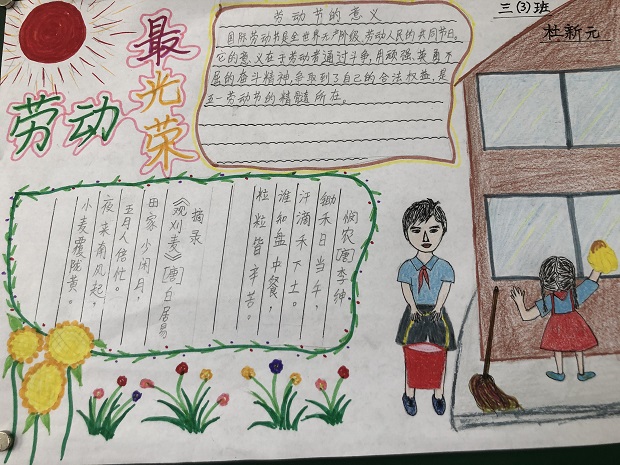 劳动
最光荣
三(3)班
杜新元
劳动节的意义
国际劳动节是全世界无产阶级、劳动人民的共同节日。
它的意义在于劳动者通过斗争,用顽强、英勇不
屈的奋斗精神,争取到了自己的合法权益,是
五一劳动节的精髓所在。
悯农[唐]李绅
锄禾日当午,
汗滴禾下土。
谁知盘中餐,
粒粒皆辛苦。
摘录
《观刈麦》[唐]白居易
田家少闲月,
五月人倍忙。
夜来南风起,
小麦覆陇黄。